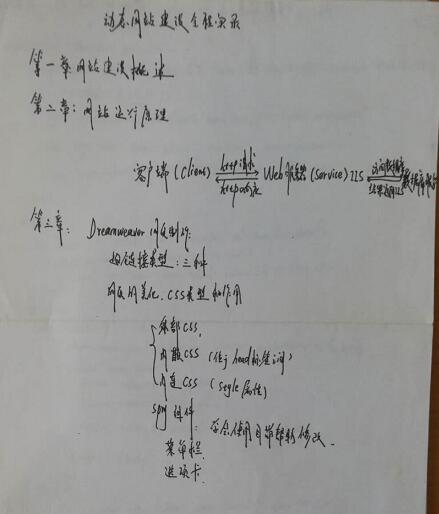 动态网站建设全程实录
第一章 网站建设概述
第二章：网站运行原理
客户端 (client) http请求 http响应 Web服务器 (service) IIS 访问数据库 结果返回IIS 数据库服务
第三章： Dreamweaver 网页制作
超链接类型：三种
网页的美化. CSS类型和作用
外部CSS.
内嵌CSS (位于head标签之间)
内连CSS (style属性)
spry组件: 学会使用自带帮助修改.
菜单栏
选项卡.